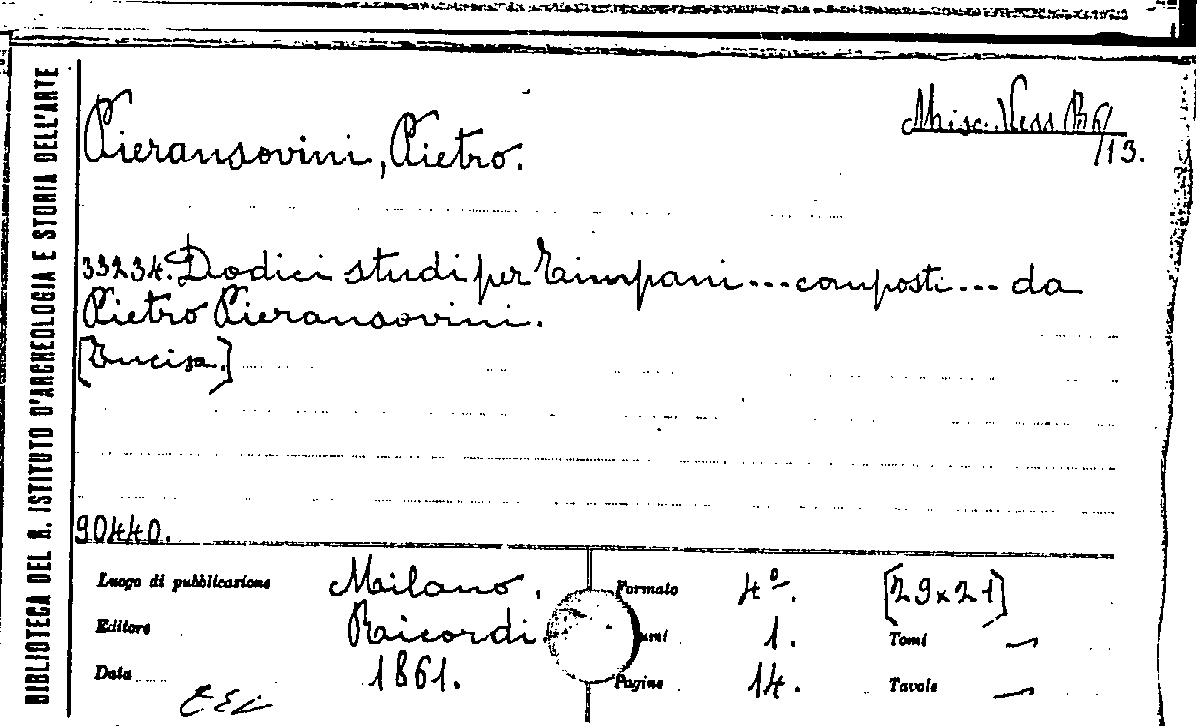 BIBLIOTECA DEL R. ISTITUTO D'ARCHEOLOGIA E STORIA DELL'ARTE
Misc. Vess B6/
/13.
Pieransovini, Pietro.
33234. Dodici studi per Timpani... composti... da
Pietro Pieransovini.
[Incisa.]
90440.
Luogo di pubblicazione Milano. Formato 4º. [29x21]
Editore Ricordi. umi 1. Tomi —
Data 1861. Pagine 14. Tavole —